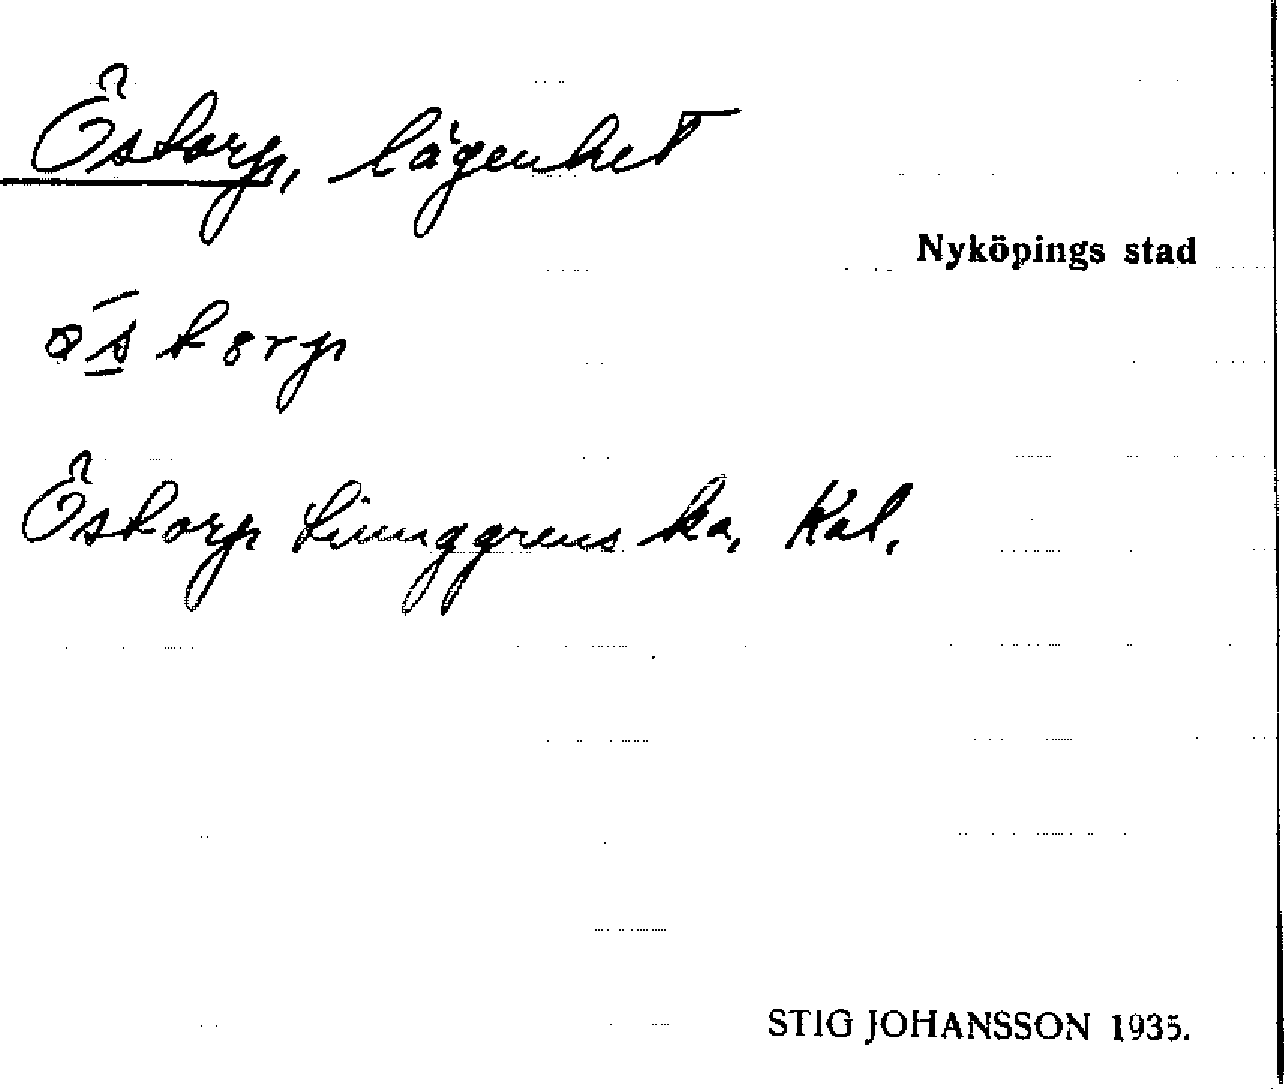 Östorp, lägenhet
Nyköpings stad
östorp
Östorp Ljunggrenska, Kal.
STIG JOHANSSON 1935.